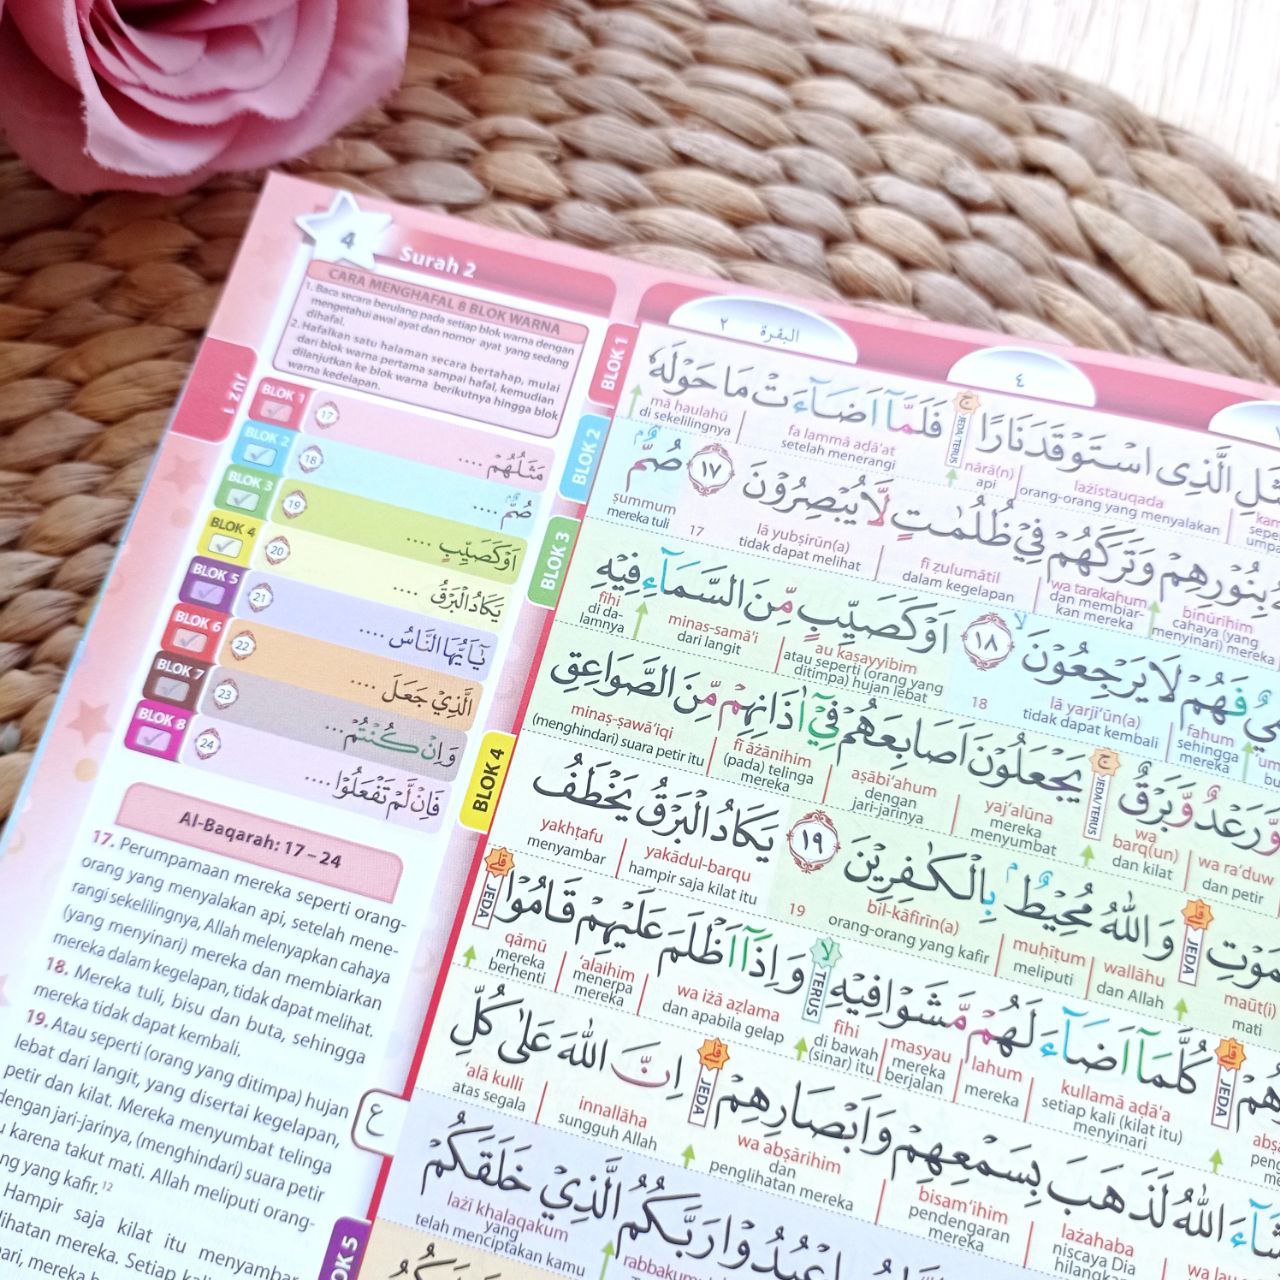 4
Surah 2
CARA MENGHAFAL 8 BLOK WARNA
1. Baca secara berulang pada setiap blok warna dengan
mengetahui awal ayat dan nomor ayat yang sedang
dihafal.
2. Hafalkan satu halaman secara bertahap, mulai
dari blok warna pertama sampai hafal, kemudian
dilanjutkan ke blok warna berikutnya hingga blok
warna kedelapan.
JUZ 1
BLOK 1 17 مَثَلُهُمْ ....
BLOK 2 18 صُمٌّ ....
BLOK 3 19 اَوْكَصَيِّبٍ ....
BLOK 4 20 يَكَادُ الْبَرْقُ ....
BLOK 5 21 يٰٓاَيُّهَا النَّاسُ ....
BLOK 6 22 الَّذِيْ جَعَلَ ....
BLOK 7 23 وَاِنْ كُنْتُمْ ...
BLOK 8 24 فَاِنْ لَّمْ تَفْعَلُوْا ....
Al-Baqarah: 17 – 24
17. Perumpamaan mereka seperti orang-
orang yang menyalakan api, setelah mene-
rangi sekelilingnya, Allah melenyapkan cahaya
(yang menyinari) mereka dan membiarkan
mereka dalam kegelapan, tidak dapat melihat.
18. Mereka tuli, bisu dan buta, sehingga
mereka tidak dapat kembali.
19. Atau seperti (orang yang ditimpa) hujan
lebat dari langit, yang disertai kegelapan,
petir dan kilat. Mereka menyumbat telinga
dengan jari-jarinya, (menghindari) suara petir
karena takut mati. Allah meliputi orang-
yang kafir. 12
Hampir saja kilat itu menyambar
mereka. Setiap
mereka
البقرة ٢
٤
BLOK 1
الَّذِى اسْتَوْقَدَ نَارًا ج فَلَمَّآ اَضَاۤءَتْ مَا حَوْلَهٗ
lażistauqada nārā(n) JEDA/TERUS fa lammā aḍā'at mā ḥaulahū
orang-orang yang menyalakan api setelah menerangi di sekelilingnya
BLOK 2
بِنُوْرِهِمْ وَتَرَكَهُمْ فِيْ ظُلُمٰتٍ لَّا يُبْصِرُوْنَ ١٧ صُمٌّ
binūrihim wa tarakahum fī ẓulumātil lā yubṣirūn(a) 17 ṣummum
cahaya (yang menyinari) mereka dan membiar-kan mereka dalam kegelapan tidak dapat melihat mereka tuli
BLOK 3
فَهُمْ لَا يَرْجِعُوْنَ لا ١٨ اَوْكَصَيِّبٍ مِّنَ السَّمَاۤءِ فِيْهِ
fahum lā yarji'ūn(a) 18 au kaṣayyibim minas-samā'i fīhi
sehingga mereka tidak dapat kembali atau seperti (orang yang ditimpa) hujan lebat dari langit di da-lamnya
وَّرَعْدٌ وَّبَرْقٌ ج يَجْعَلُوْنَ اَصَابِعَهُمْ فِيْٓ اٰذَانِهِمْ مِّنَ الصَّوَاعِقِ
wa ra'duw wa barq(un) JEDA/TERUS yaj'alūna aṣābi'ahum fī āżānihim minaṣ-ṣawā'iqi
dan petir dan kilat mereka menyumbat dengan jari-jarinya (pada) telinga mereka (menghindari) suara petir itu
BLOK 4
وَاللّٰهُ مُحِيْطٌ بِالْكٰفِرِيْنَ ١٩ يَكَادُ الْبَرْقُ يَخْطَفُ
maūt(i) JEDA wallāhu muḥīṭum bil-kāfirīn(a) 19 yakādul-barqu yakhṭafu
mati dan Allah meliputi orang-orang yang kafir hampir saja kilat itu menyambar
قلى كُلَّمَآ اَضَاۤءَ لَهُمْ مَّشَوْا فِيْهِ لا وَاِذَآ اَظْلَمَ عَلَيْهِمْ قَامُوْا قلى
JEDA kullamā aḍā'a lahum masyau fīhi TERUS wa iżā aẓlama 'alaihim qāmū JEDA
setiap kali (kilat itu) menyinari mereka mereka berjalan di bawah (sinar) itu dan apabila gelap menerpa mereka mereka berhenti
اللّٰهُ لَذَهَبَ بِسَمْعِهِمْ وَاَبْصَارِهِمْ قلى اِنَّ اللّٰهَ عَلٰى كُلِّ
lażahaba bisam'ihim wa abṣārihim JEDA innallāha 'alā kulli
niscaya Dia pendengaran mereka dan penglihatan mereka sungguh Allah atas segala
ع
BLOK 5
اعْبُدُوْا رَبَّكُمُ الَّذِيْ خَلَقَكُمْ
lażī khalaqakum
yang telah menciptakan kamu